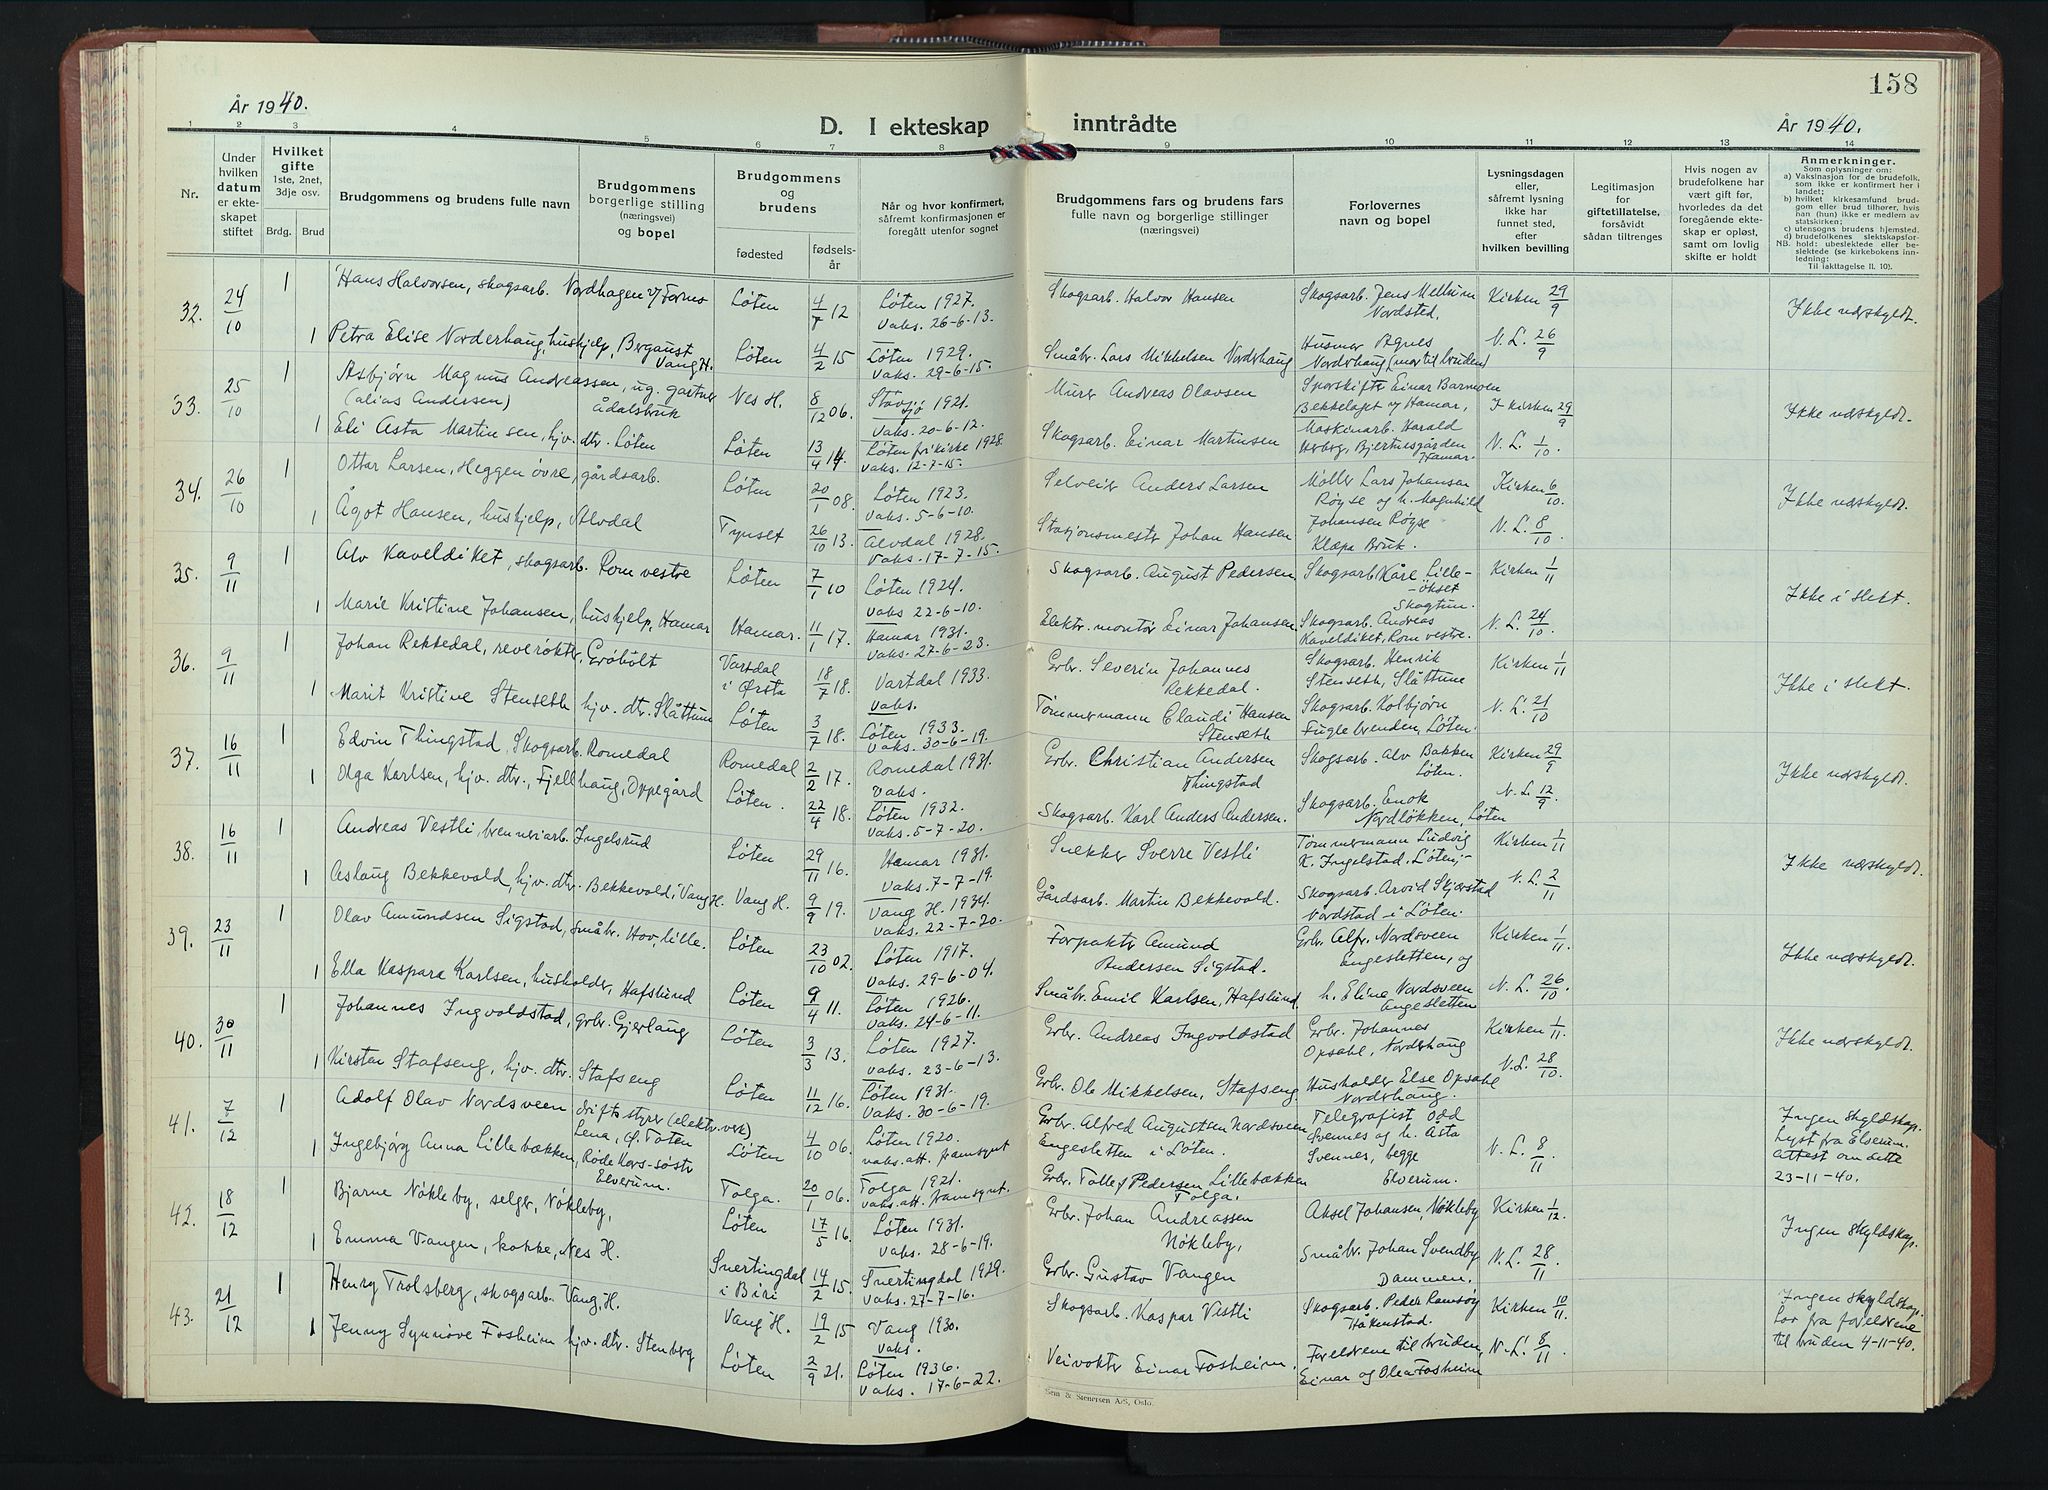 158
År 1940.
D. I ekteskap inntrådte
År 1940.
1 2 3 4 5 6 7 8 9 10 11 12 13 14
Nr.
Under hvilken datum er ekteskapet stiftet
Hvilket gifte 1ste, 2net, 3dje osv.
Brdg. Brud
Brudgommens og brudens fulle navn
Brudgommens borgerlige stilling (næringsvei) og bopel
Brudgommens og brudens
fødested
fødselsår
Når og hvor konfirmert, såfremt konfirmasjonen er foregått utenfor sognet
Brudgommens fars og brudens fars fulle navn og borgerlige stillinger (næringsvei)
Forlovernes navn og bopel
Lysningsdagen eller, såfremt lysning ikke har funnet sted, efter hvilken bevilling
Legitimasjon for giftetillatelse, forsåvidt sådan tiltrenges
Hvis nogen av brudefolkene har vært gift før, hvorledes da det foregående ekteskap er opløst, samt om lovlig skifte er holdt
Anmerkninger.
Som oplysninger om:
a) Vaksinasjon for de brudefolk, som ikke er konfirmert her i landet;
b) hvilket kirkesamfund brudgom eller brud tilhører, hvis han (hun) ikke er medlem av statskirken;
c) utensogns brudens hjemsted.
d) brudefolkenes slektskapsforhold: ubeslektede eller beslektede (se kirkebokens innledning:
NB.
Til iakttagelse II. 10).
32. 24/10 1 Hans Halvorsen, skogsarb. Nordhagen u/ Fornes Løten 4/7 12 Løten 1927. Vaks. 26-6-13. Skogsarb. Halvor Hansen Skogsarb. Jens Mellum Nordsted. Kirken 29/9 Ikke nærskyldt.
1 Petra Elise Norderhaug, hushjelp, Bergaust Vang H. Løten 4/2 15 Løten 1929. Vaks. 29-6-15. Småbr. Lars Mikkelsen Norderhaug Husmor Agnes Norderhaug (mor til bruden) N.L. 26/9
33. 25/10 1 Asbjørn Magnus Andreassen, ug. gartner (alias Andersen) Ådalsbruk Nes H. 8/12 06. Stavsjø 1921. Vaks. 20-6-12. Murer Andreas Olavsen Sporskifter Einar Barmoen Bekkelaget v/ Hamar, I kirken 29/9 Ikke nærskyldt.
1 Eli Asta Martinsen, hjv. dtr. Løten Løten 13/4 14. Løten frikirke 1928. Vaks. 12-7-15. Skogsarb. Einar Martinsen Maskinarb. Harald Herberg, Bjertnesgården Hamar. N.L. 1/10.
34. 26/10 1 Ottar Larsen, Heggen øvre, gårdsarb. Løten 20/1 08. Løten 1923. Vaks. 5-6-10. Selveier Anders Larsen Møller Lars Johansen Røyse og h. Magnhild Kirken 6/10. Ikke nærskyldt.
1 Ågot Hansen, hushjelp, Alvdal Tynset 26/10 13. Alvdal 1928. Vaks. 17-7-15. Stasjonsmester Johan Hansen Johansen Røyse Klæpa Bruk. N.L. 8/10.
35. 9/11 1 Alv Kaveldiket, skogsarb. Rom vestre Løten 7/1 10 Løten 1924. Vaks 22-6-10. Skogsarb. August Pedersen Skogsarb. Kåre Lilleökset Skogtun. Kirken 1/11 Ikke i slekt.
1 Marie Kristine Johansen, hushjelp, Hamar Hamar. 11/1 17. Hamar 1931. Vaks. 27-6-23. Elektr. montør Einar Johansen. Skogsarb. Andreas Kaveldiket, Rom vestre. N.L. 24/10.
36. 9/11 1 Johan Rekkedal, reverøkter, Grøholt Vartdal i Ørsta 18/7 18. Vartdal 1933. Vaks. Grbr. Severin Johannes Rekkedal. Skogsarb. Henrik Stenseth, Slåttum Kirken 1/11 Ikke i slekt.
1 Marit Kristine Stenseth hjv. dtr. Slåttum Løten 3/7 18. Løten 1933. Vaks. 30-6-19. Tømmermann Claudi Hansen Stenseth Skogsarb. Kolbjørn Fuglebrenden, Løten. N.L. 21/10
37. 16/11 1 Edvin Thingstad, Skogsarb. Romedal Romedal 2/2 17. Romedal 1931. Vaks. Grbr. Christian Andersen Thingstad Skogsarb. Alv Bakken Løten. Kirken 29/9 Ikke nærskyldt.
1 Olga Karlsen, hjv. dtr., Fjellhaug, Oppegård Løten. 22/4 18. Løten 1932. Vaks. 5-7-20. Skogsarb. Karl Anders Andersen. Skogsarb. Enok Nordløkken, Løten N.L. 12/9.
38. 16/11 1 Andreas Vestli, brenneriarb. Ingelsrud Løten 29/11 16. Hamar 1931. Vaks. 7-7-19. Snekker Sverre Vestli Tømmermann Ludvig K. Ingelstad, Løten; Kirken 1/11 Ikke nærskyldt.
1 Aslaug Bekkevold, hjv. dtr. Bekkevold, i Vang H. Vang H. 9/9 19. Vang H. 1934. Vaks. 22-7-20. Gårdsarb. Martin Bekkevold. Skogsarb. Arvid Skjerstad Nordstad i Løten. N.L. 2/11
39. 23/11 1 Olav Amundsen Sigstad, småbr. Hov, lille. Løten 23/10 02. Løten 1917. Vaks. 29-6-04. Forpakter Amund Andersen Sigstad. Grbr. Alfr. Nordsveen Engesletten, og Kirken 1/11. Ikke nærskyldt.
1 Ella Kaspara Karlsen, husholder, Hafslund Løten 9/4 11. Løten 1926. Vaks. 24-6-11. Småbr. Emil Karlsen, Hafslund h. Eline Nordsveen Engesletten N.L. 26/10.
40. 30/11 1 Johannes Ingvoldstad, grbr. Gjerlaug Løten 3/3 13. Løten 1927. Vaks. 23-6-13. Grbr. Andreas Ingvoldstad Grbr. Johannes Opsahl, Norderhaug Kirken 1/11. Ikke nærskyldt.
1 Kirsten Stafseng, hjv. dtr. Stafseng Løten 11/12 16. Løten 1931. Vaks. 30-6-19. Grbr. Ole Mikkelsen, Stafseng Husholder Else Opsahl Norderhaug. N.L. 28/10.
41. 7/12 1 Adolf Olav Nordsveen driftsstyrer (elektr.verk) Lena, Ø. Toten Løten 4/10 06. Løten 1920. vaks. att. framsynt Grbr. Alfred Augustsen Nordsveen Engesletten i Løten. Telegrafist Odd Svennes og h. Åsta Svennes, begge Elverum. N.L. 8/11 Ingen skyldskap. Lyst fra Elverum. Attest om dette 23-11-40.
1 Ingebjørg Anna Lillebækken, Røde Kors-søster Elverum. Tolga. 20/1 06. Tolga 1921. vaks. att. framsynt. Grbr. Tollef Pedersen Lillebækken Tolga.
42. 18/12 1 Bjarne Nøkleby, selger, Nøkleby, Løten 17/5 16. Løten 1931. Vaks. 28-6-19. Grbr. Johan Andreassen Nøkleby, Aksel Johansen, Nøkleby Kirken 1/12. Ingen skyldskap.
1 Emma Vangen, kokke, Nes H. Snertingdal i Biri 14/2 15. Snertingdal 1929. Vaks. 27-7-16. Grbr. Gustav Vangen Småbr. Johan Svendby Dammen. N.L. 28/11
43. 21/12 1 Henry Trolsberg, skogsarb. Vang, H. Vang H. 19/2 15 Vang 1930. Vaks. Skogsarb. Kaspar Vestli Skogsarb. Peder Ramsøy Håkenstad. Kirken 10/11. Ingen skyldskap. Lov fra foreldrene til bruden 4-11-40.
1 Jenny Synnøve Fosheim hjv. dtr. Stenberg Løten 2/9 21. Løten 1936. Vaks. 17-6-22. Veivokter Einar Fosheim. Foreldrene til bruden, Einar og Olea Fosheim N.L. 8/11
Sem & Stenersen A/S, Oslo.